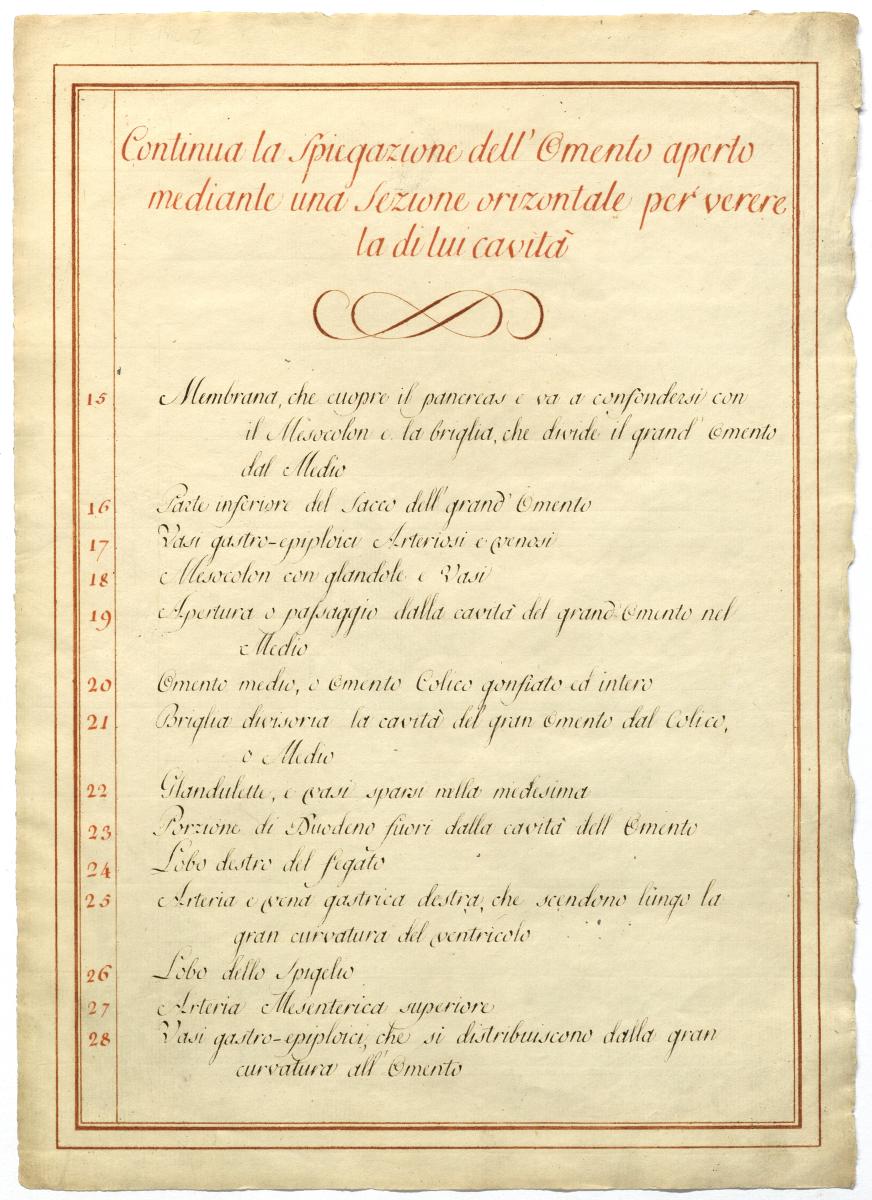 Continua la Spiegazione dell' Omento aperto
mediante una Sezione orizontale per verere
la di lui cavità
15 Membrana, che cuopre il pancreas e va a confondersi con
il Mesocolon e la briglia, che divide il grand' Omento
dal Medio
16 Parte inferiore del Sacco dell' grand' Omento
17 Vasi gastro-epiploici Arteriosi e venosi
18 Mesocolon con glandole e Vasi
19 Apertura o passaggio dalla cavità del grand' Omento nel
Medio
20 Omento medio, o Omento Colico gonfiato ed intero
21 Briglia divisoria la cavità del gran Omento dal Colico,
o Medio
22 Glandulette, e vasi sparsi nella medesima
23 Porzione di Duodeno fuori dalla cavità dell Omento
24 Lobo destro del fegato
25 Arteria e vena gastrica destra, che scendono lungo la
gran curvatura del ventricolo
26 Lobo dello Spigelio
27 Arteria Mesenterica superiore
28 Vasi gastro-epiploici, che si distribuiscono dalla gran
curvatura all' Omento